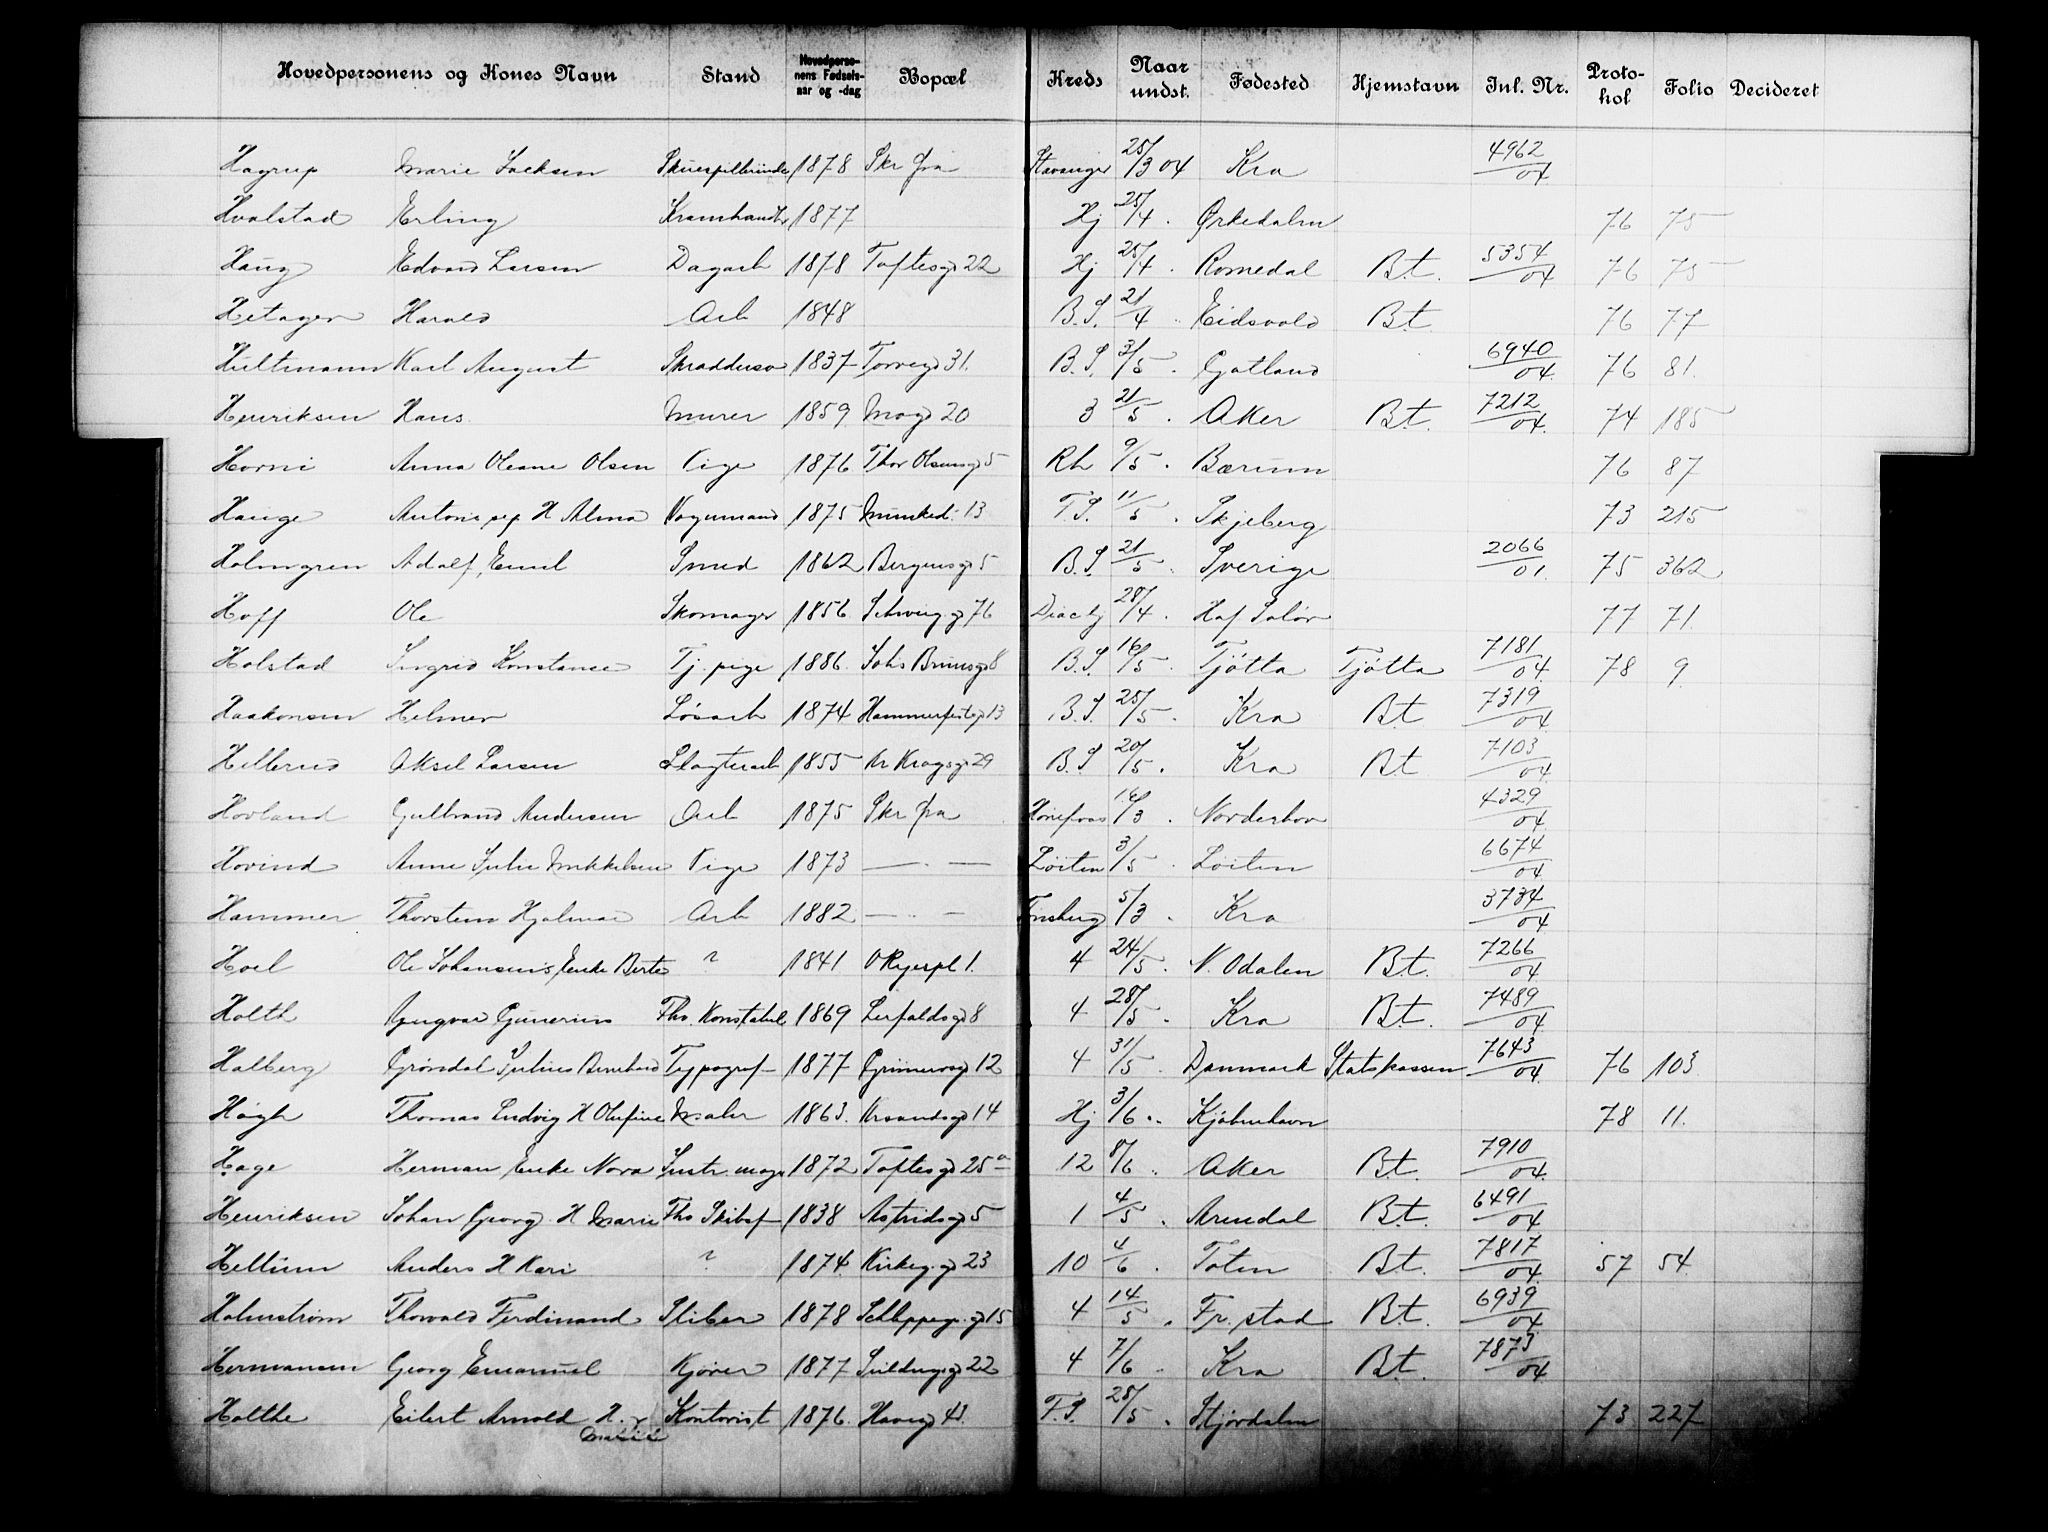 Hovedpersonens og Kones Navn Stand Hovedperso-nens Fødsels-aar og -dag Bopæl Kreds Naar undst. Fødested Hjemstavn Inl. Nr. Proto-kol Folio Decideret
Hagrup Marie Isaksen Skuespillerinde 1878 Skr fra Stavanger 25/3 04 Kra 4962/04
Hvalstad Erling Kramhandl 1877 Hj 25/4 . Ørkedalen 76 75
Haug Edvard Larsen Dagarb 1878 Toftesgd 22 Hj 25/4 . Romedal B.t. 5354/04 76 75
Hetager Harald Arb 1848 B.S. 21/4 . Eidsvold B.t. 76 77
Hultmann Karl August Skræddersv 1837 Torvegd 31. B.S. 3/5 . Gotland 6940/04. 76 81.
Henriksen Hans. Murer 1859. Mogd 20 3 21/5 . Aker B.t. 7212/04. 74 185
Horni Anna Oleane Olsen Pige 1876 Thor Olsensgd 5 Rh 9/5 . Bærum 76 87
Hauge Anton, sep H Alma Vognmand 1875 Munked. 13 T.S. 11/5 . Skjeberg 73 215
Holmgren Adolf, Emil Smed 1862 Bergensgd 5 B.S 21/5 . Sverige 2066/01. 75 362
Hoff Ole Skomager 1856. Schweigg 76 28/4 . Hof Solør 77 71.
Holstad Ingrid Konstance Tj. pige 1886. Johs Brunsgd 8 B.S 16/5 . Tjøtta Tjøtta 7181/04 78 9.
Haakonsen Helmer Løsarb 1874 Hammerfestgd 13 B.S. 25/5 . Kra B.t 7319/04
Hellerud Aksel Larsen Slagterarb 1855 Kr Krogsgd 29 B.S 20/5 . Kra B.t 7103/04
Hovland Gulbrand Andersen Arb 1875 Skr fra Hønefoss 16/3 . Norderhov 4329/04
Hovind Anne Julie Mikkelsen Pige 1873 — . — Løiten 3/5 . Løiten 6674/04
Hammer Thorstein Hjalmar Arb 1882 — .. — Tønsberg 5/3 . Kra 3734/04
Hoel Ole Johansens, Enke Berte ? 1841 O Ryespl 1. 4 24/5 . N. Odalen B.t. 7266/04
Holth Yngvar Gunerius Fhv. Konstabel 1869 Lerfaldsgd 8 4 28/5 . Kra B.t. 7489/04
Halberg Grøndal Julius Bernhard Typograf 1877 Grünersgd 12 4 31/5 . Danmark Statskassen 7643/04. 76 103.
Høgh Thomas Ludvig H Olufine Maler 1863. Krsandsgd 14 Hj 3/6 . Kjøbenhavn 78 11.
Hage Herman, Enke Nora Instr. mager 1872 Toftesgd 25 a 12 8/6 . Aker B.t. 7910/04.
Henriksen Johan Georg. H Marie Fhv Skibsf 1838 Astridsgd 5 1 4/5 . Arendal B.t. 6491/04
Hellum Anders H Kari ? 1874 Kirkeg.gd 23 10 4/6 . Toten B.t. 7817/04. 57 54.
Holmstrøm Thorvald Ferdinand Sliber 1878 Schleppegr.gd 15 4 14/5 . Fr. stad B.t. 6939/04
Hermansen Georg Emanuel Kjører 1877 Suldugsgd 22 4 7/6 . Kra B.t. 7873/04
Holthe Eilert Arnold H. Marie Kontorist 1876. Havegd 41. F.S. 25/5 . Stjørdalen 73 227